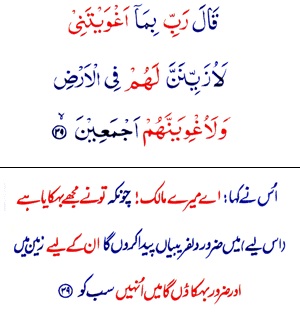 قَالَ رَبِّ بِمَاۤ اَغْوَيْتَنِىْ
لَاُزَيِّنَنَّ لَهُمْ فِى الْاَرْضِ
وَلَاُغْوِيَنَّهُمْ اَجْمَعِيْنَۙ ۳۹
اُس نے کہا: اے میرے مالک! چونکہ تو نے مجھے بہکایا ہے
(اس لیے) میں ضرور دلفریبیاں پیدا کروں گا ان کے لیے زمین میں
اور ضرور بہکا دُوں گا میں اُنہیں سب کو ۳۹